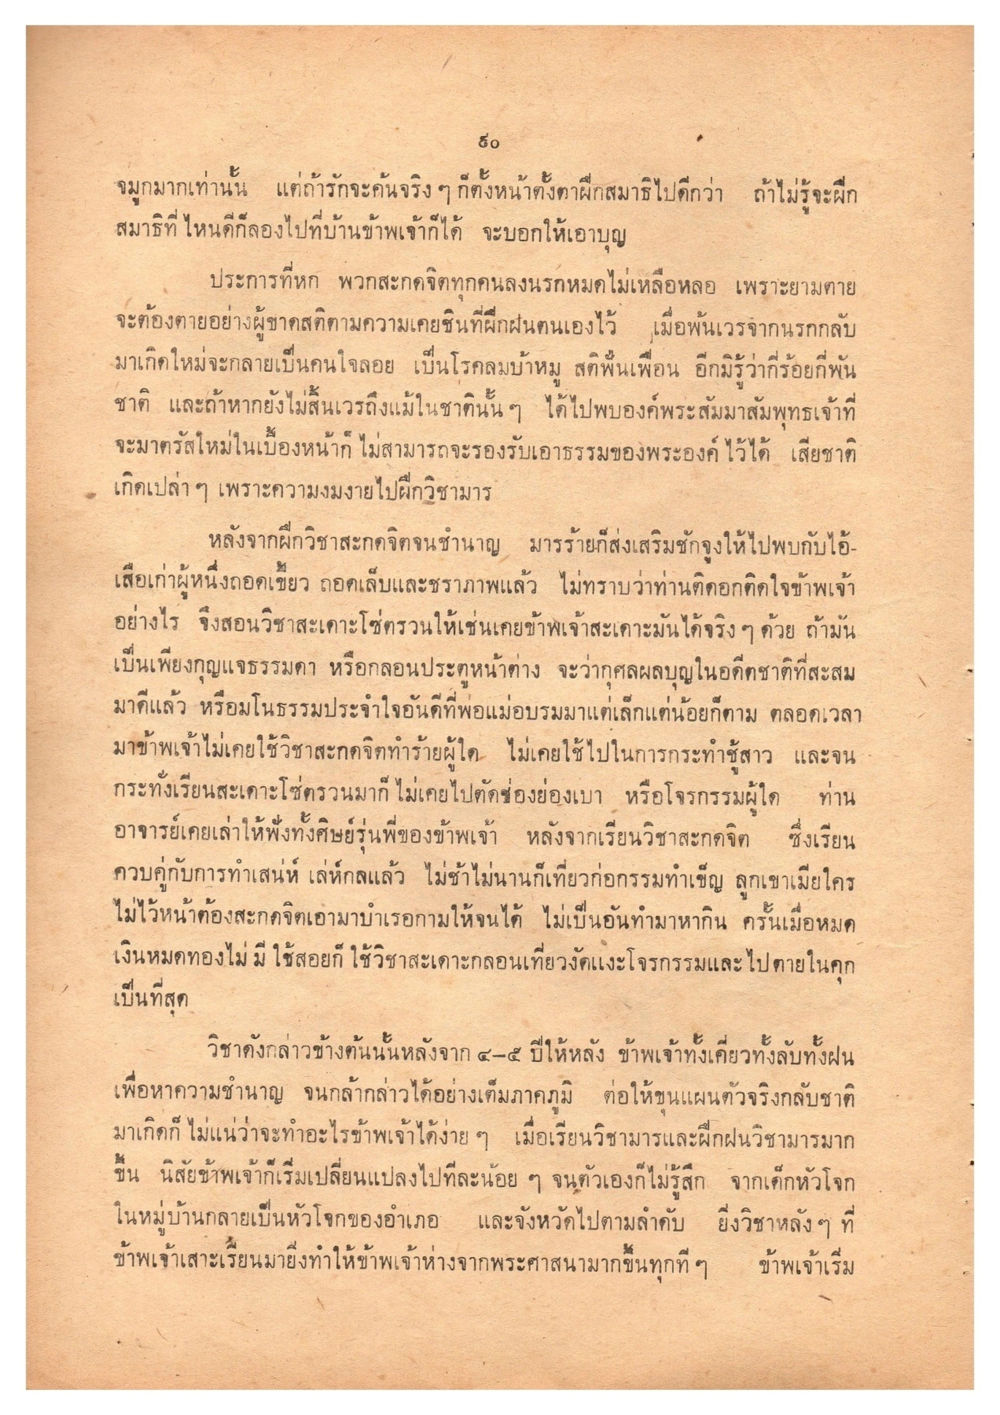 ๕๐
จมูกมากเท่านั้น แต่ถ้ารักจะค้นจริง ๆ ก็ตั้งหน้าตั้งตาฝึกสมาธิไปดีกว่า ถ้าไม่รู้จะฝึก
สมาธิที่ไหนดีก็ลองไปที่บ้านข้าพเจ้าก็ได้ จะบอกให้เอาบุญ
ประการที่หก พวกสะกดจิตทุกคนลงนรกหมดไม่เหลือหลอ เพราะยามตาย
จะต้องตายอย่างผู้ขาดสติตามความเคยชินที่ฝึกฝนตนเองไว้ เมื่อพ้นเวรจากนรกกลับ
มาเกิดใหม่จะกลายเป็นคนใจลอย เป็นโรคลมบ้าหมู สติฟั่นเฟือน อีกมิรู้ว่ากี่ร้อยกี่พัน
ชาติ และถ้าหากยังไม่สิ้นเวรถึงแม้ในชาตินั้น ๆ ได้ไปพบองค์พระสัมมาสัมพุทธเจ้าที่
จะมาตรัสใหม่ในเบื้องหน้าก็ไม่สามารถจะรองรับเอาธรรมของพระองค์ไว้ได้ เสียชาติ
เกิดเปล่า ๆ เพราะความงมงายไปฝึกวิชามาร
หลังจากฝึกวิชาสะกดจิตจนชำนาญ มารร้ายก็ส่งเสริมชักจูงให้ไปพบกับไอ้-
เสือเก่าผู้หนึ่งถอดเขี้ยว ถอดเล็บและชราภาพแล้ว ไม่ทราบว่าท่านติดอกติดใจข้าพเจ้า
อย่างไร จึงสอนวิชาสะเดาะโซ่ตรวนให้เช่นเคยข้าพเจ้าสะเดาะมันได้จริง ๆ ด้วย ถ้ามัน
เป็นเพียงกุญแจธรรมดา หรือกลอนประตูหน้าต่าง จะว่ากุศลผลบุญในอดีตชาติที่สะสม
มาดีแล้ว หรือมโนธรรมประจำใจอันดีที่พ่อแม่อบรมมาแต่เล็กแต่น้อยก็ตาม ตลอดเวลา
มาข้าพเจ้าไม่เคยใช้วิชาสะกดจิตทำร้ายผู้ใด ไม่เคยใช้ไปในการกระทำชู้สาว และจน
กระทั่งเรียนสะเดาะโซ่ตรวนมาก็ไม่เคยไปตัดช่องย่องเบา หรือโจรกรรมผู้ใด ท่าน
อาจารย์เคยเล่าให้ฟังทั้งศิษย์รุ่นพี่ของข้าพเจ้า หลังจากเรียนวิชาสะกดจิต ซึ่งเรียน
ควบคู่กับการทำเสน่ห์ เล่ห์กลแล้ว ไม่ช้าไม่นานก็เที่ยวก่อกรรมทำเข็ญ ลูกเขาเมียใคร
ไม่ไว้หน้าต้องสะกดจิตเอามาบำเรอกามให้จนได้ ไม่เป็นอันทำมาหากิน ครั้นเมื่อหมด
เงินหมดทองไม่มีใช้สอยก็ใช้วิชาสะเดาะกลอนเที่ยวงัดแงะโจรกรรมและไปตายในคุก
เป็นที่สุด
วิชาดังกล่าวข้างต้นนั้นหลังจาก ๔–๕ ปีให้หลัง ข้าพเจ้าทั้งเคี่ยวทั้งลับทั้งฝน
เพื่อหาความชำนาญ จนกล้ากล่าวได้อย่างเต็มภาคภูมิ ต่อให้ขุนแผนตัวจริงกลับชาติ
มาเกิดก็ไม่แน่ว่าจะทำอะไรข้าพเจ้าได้ง่าย ๆ เมื่อเรียนวิชามารและฝึกฝนวิชามารมาก
ขึ้น นิสัยข้าพเจ้าก็เริ่มเปลี่ยนแปลงไปทีละน้อย ๆ จนตัวเองก็ไม่รู้สึก จากเด็กหัวโจก
ในหมู่บ้านกลายเป็นหัวโจกของอำเภอ และจังหวัดไปตามลำดับ ยิ่งวิชาหลัง ๆ ที่
ข้าพเจ้าเสาะเรียนมายิ่งทำให้ข้าพเจ้าห่างจากพระศาสนามากขึ้นทุกที ๆ ข้าพเจ้าเริ่ม